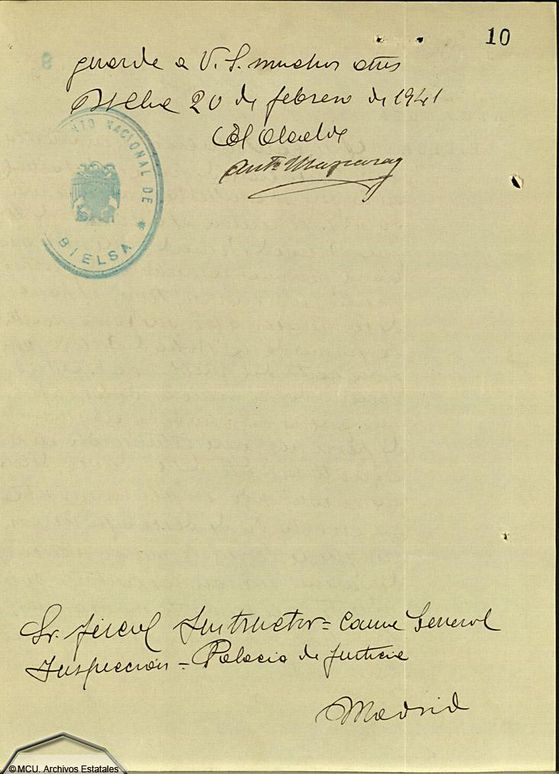 10
guarde a V. S. muchos años
Bielsa 20 de febrero de 1941
El Alcalde
NTO NACIONAL DE
BIELSA
Sr. Fiscal Instructor = Causa General
Inspección = Palacio de Justicia
Madrid
© MCU. Archivos Estatales